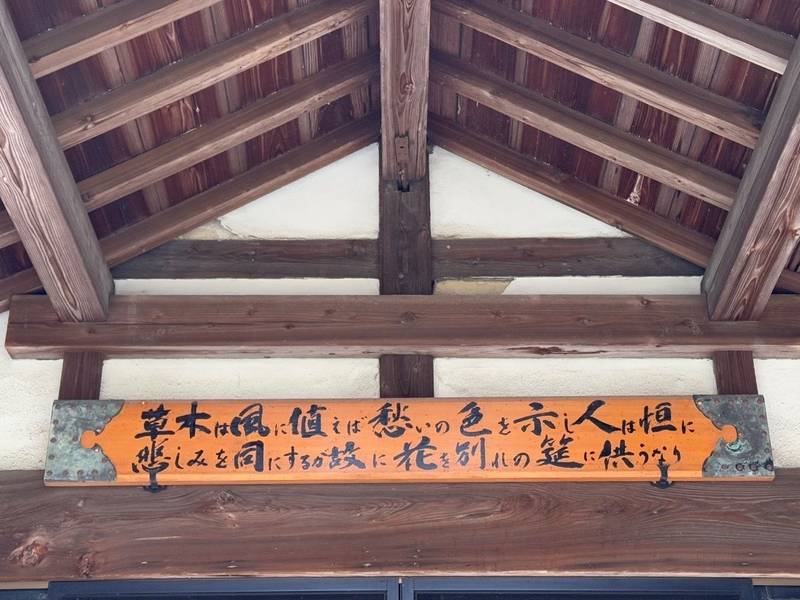 草木は風に値えば愁いの色を示し人は恒に
悲しみを同にするが故に花を別れの筵に供うなり